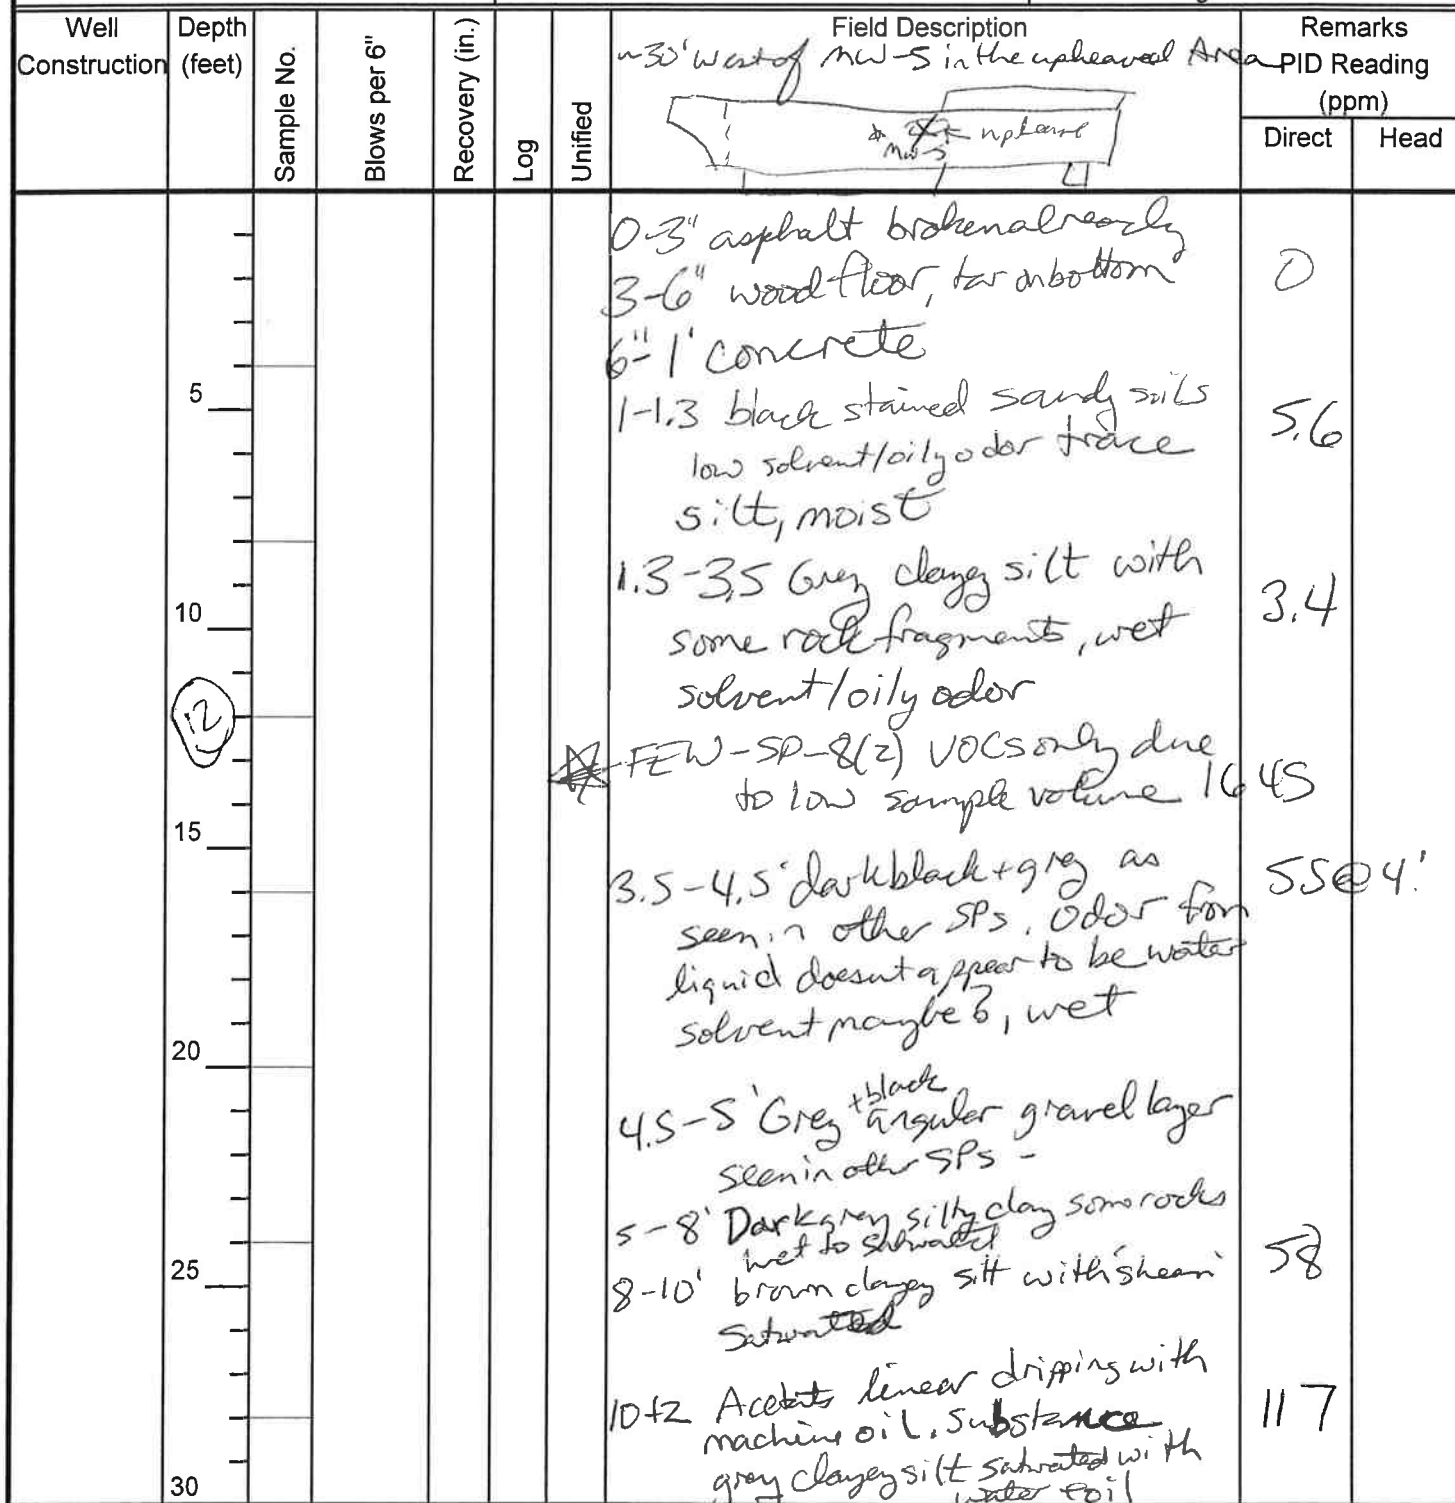 Well Construction
Depth (feet)
Sample No.
Blows per 6"
Recovery (in.)
Log
Unified
Field Description
~30' West of MW-5 in the upheaved Area
MW-5
upheave
Remarks
PID Reading
(ppm)
Direct
Head
0-3" asphalt broken already
3-6" wood floor, tar on bottom
0
6"-1' concrete
5
1-1.3 black stained sandy soils
5.6
low solvent/oily odor trace
silt, moist
1.3-3.5 Grey clayey silt with
3.4
10
some rock fragments, wet
solvent/oily odor
12
FEW-SP-8(2) VOCs only due
to low sample volume 1645
15
3.5-4.5' dark black + grey as
55@4'
seen in other SPs. Odor from
liquid doesnt appear to be water
solvent maybe?, wet
20
4.5-5' Grey + black angular gravel layer
seen in other SPs -
5-8' Dark grey silty clay some rocks
wet to saturated
25
8-10' brown clayey silt with 'shean'
58
Saturated
Acetate linear dripping with
117
machine oil. Substance
grey clayey silt saturated with
30
water + oil